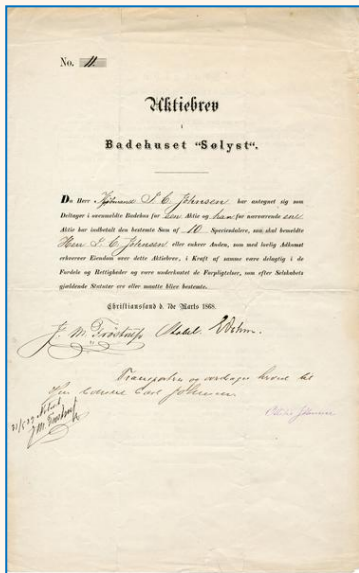 No. 11.
Aktiebrev
i
Badehuset “Sølyst“.
Da Herr Kjøbmand S. C. Johnsen har antegnet sig som
Deltager i ovenmeldte Badehus for een Aktie og han for nærværende een
Aktie har indbetalt den bestemte Sum af 10 Speciesdalere, saa skal bemeldte
Herr S. C. Johnsen eller enhver Anden, som med lovlig Adkomst
erhverver Eiendom over dette Aktiebrev, i Kraft af samme være delagtig i de
Fordele og Rettigheder og være underkastet de Forpligtelser, som efter Selskabets
gjældende Statuter ere eller maatte blive bestemte.
Christianssand d. 7de Marts 1868.
J. M. Trodtrup
Transporteres og overdrages herved til
Herr Carl Johnsen
Johnsen